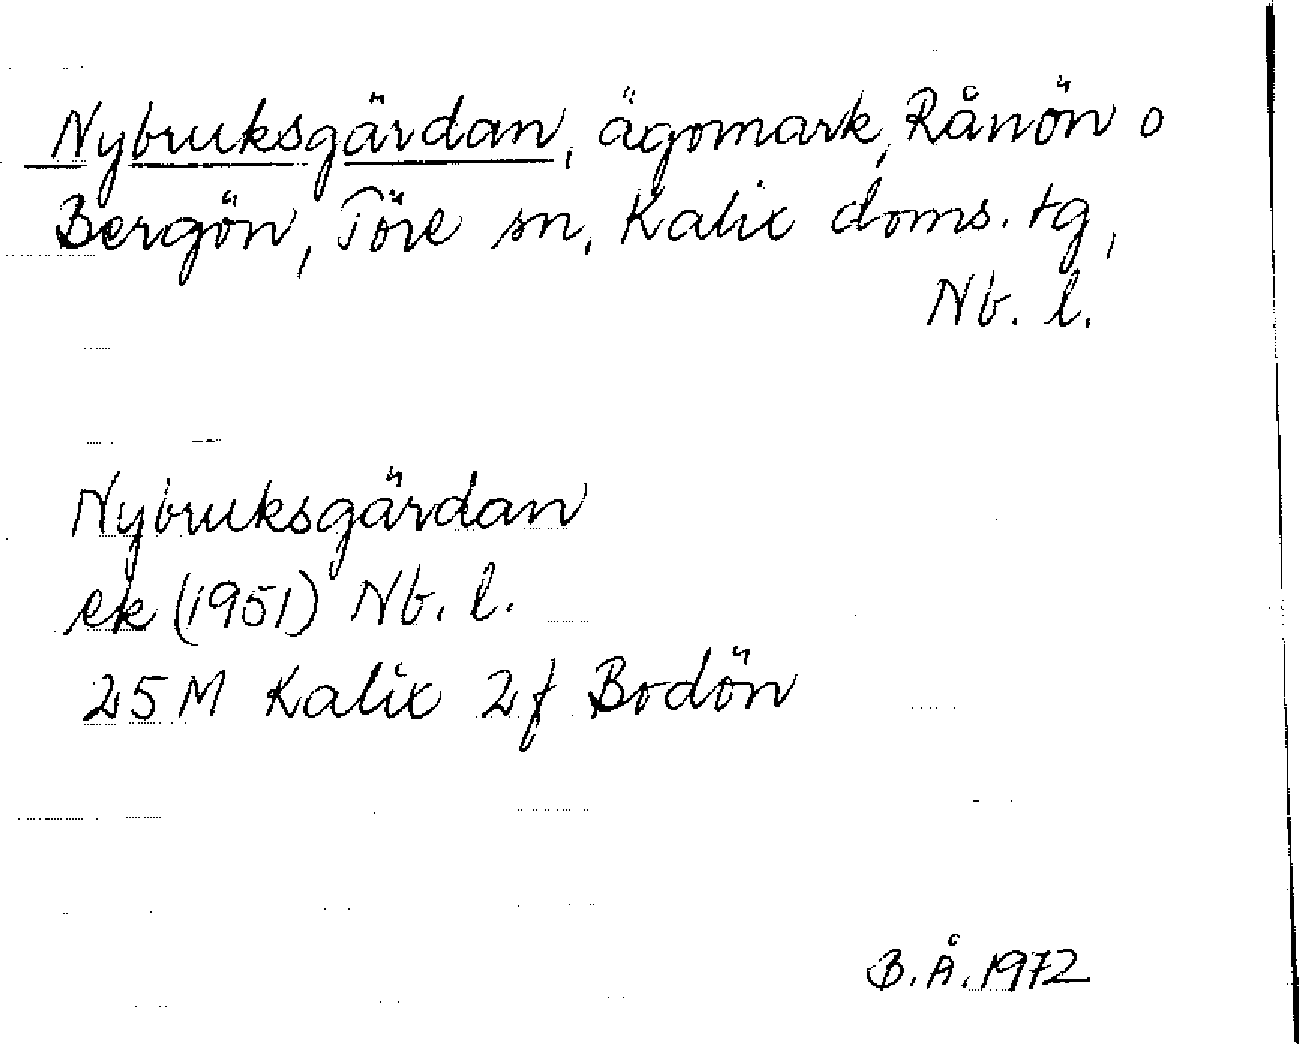 Nybruksgärdan, ägomark, Rånön o
Bergön, Töre sn, Kalix doms. tg,
Nb. l.
Nybruksgärdan
ek (1951) Nb. l.
25 M Kalix 2f Bodön
B. Å. 1972